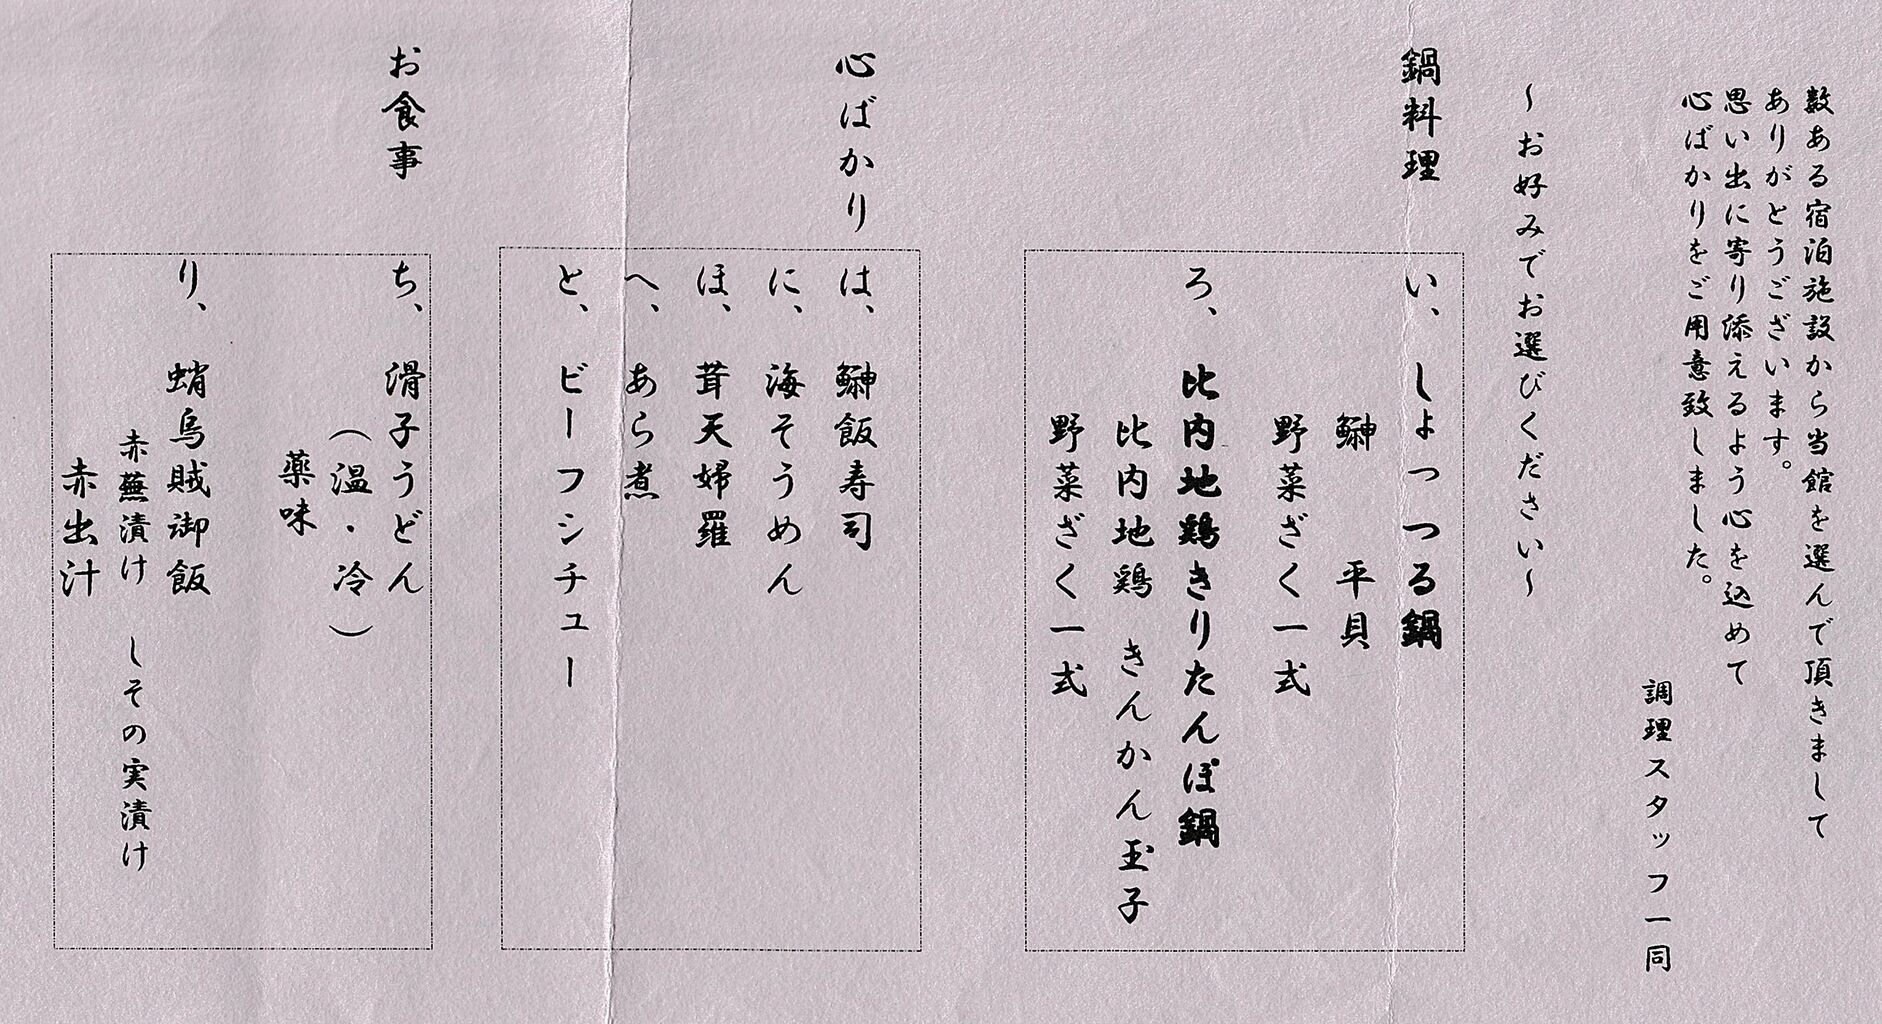 数ある宿泊施設から当館を選んで頂きまして
ありがとうございます。
思い出に寄り添えるよう心を込めて
心ばかりをご用意致しました。
調理スタッフ一同
～お好みでお選びください～
鍋料理
い、しょっつる鍋
鰰 平貝
野菜ざく一式
ろ、比内地鶏きりたんぽ鍋
比内地鶏 きんかん玉子
野菜ざく一式
心ばかり
は、鰰飯寿司
に、海そうめん
ほ、茸天婦羅
へ、あら煮
と、ビーフシチュー
お食事
ち、滑子うどん
（温・冷）
薬味
り、蛸烏賊御飯
赤蕪漬け しその実漬け
赤出汁